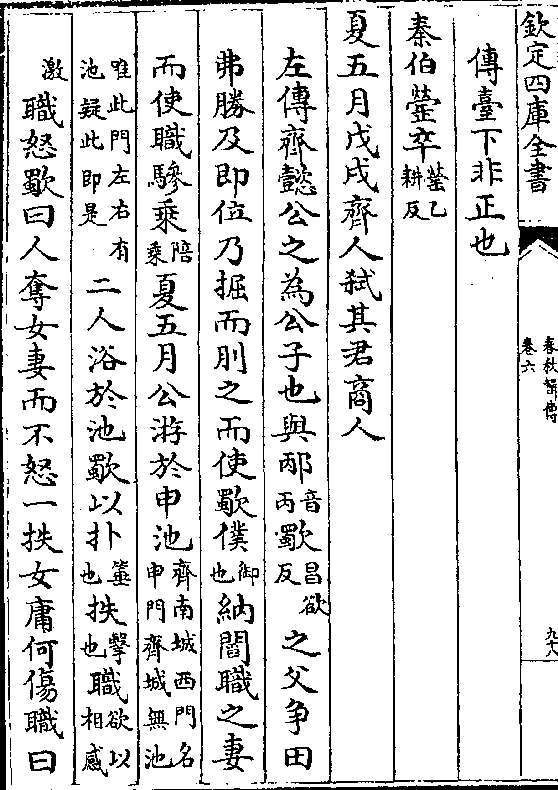 欽定四庫全書
春秋輯傳
卷六
九十八
傳臺下非正也
秦伯罃卒罃乙耕反
夏五月戊戌齊人弒其君商人
左傳齊懿公之為公子也與邴音丙歜昌欲反之父爭田
弗勝及即位乃掘而刖之而使歜僕御也納閻職之妻
而使職驂乘陪乘夏五月公游於申池齊南城西門名申門齊城無池
唯此門左右有池疑此即是二人浴於池歜以扑箠也抶擊也職欲以相感
激職怒歜曰人奪女妻而不怒一抶女庸何傷職曰